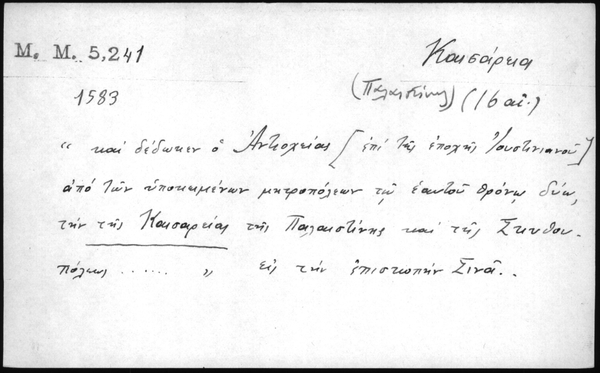 Μ. Μ. 5,241
Καισάρεια
1583
(Παλαιστίνης) (16 αἰ.)
“ καὶ δέδωκεν ὁ Ἀντιοχείας [ἐπὶ τῆς ἐποχῆς Ἰουστινιανοῦ]
ἀπὸ τῶν ὑποκειμένων μητροπόλεων τῷ ἑαυτοῦ θρόνῳ δύω,
τὴν τῆς Καισαρείας τῆς Παλαιστίνης καὶ τῆς Σκυθου-
πόλεως ........ „ εἰς τὴν ἐπισκοπὴν Σινᾶ..